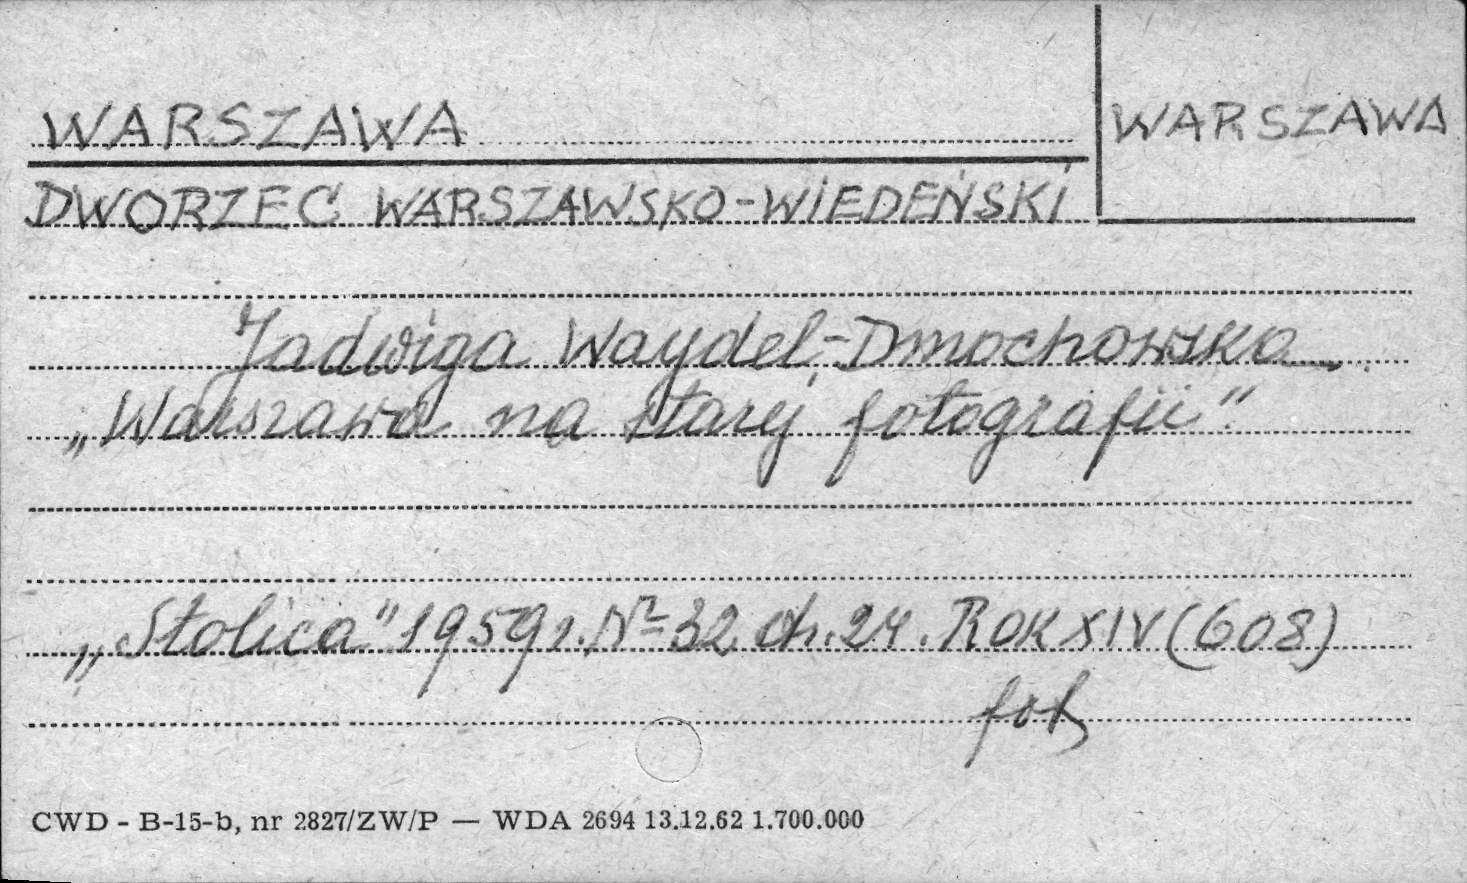 WARSZAWA
WARSZAWA
DWORZEC WARSZAWSKO-WIEDEŃSKI
Jadwiga Waydel-Dmochowska
„Warszawa na starej fotografii”
„Stolica” 1959 r. Nr 32 str. 24. ROK XIV (608)
fot
CWD - B-15-b, nr 2827/ZW/P — WDA 2694 13.12.62 1.700.000